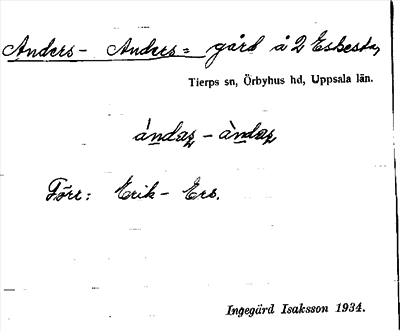 Anders- Anders= gård å 2 Eskesta,
Tierps sn, Örbyhus hd, Uppsala län.
ándaş - àndaş
Förr: Erik- Ers.
Ingegärd Isaksson 1934.